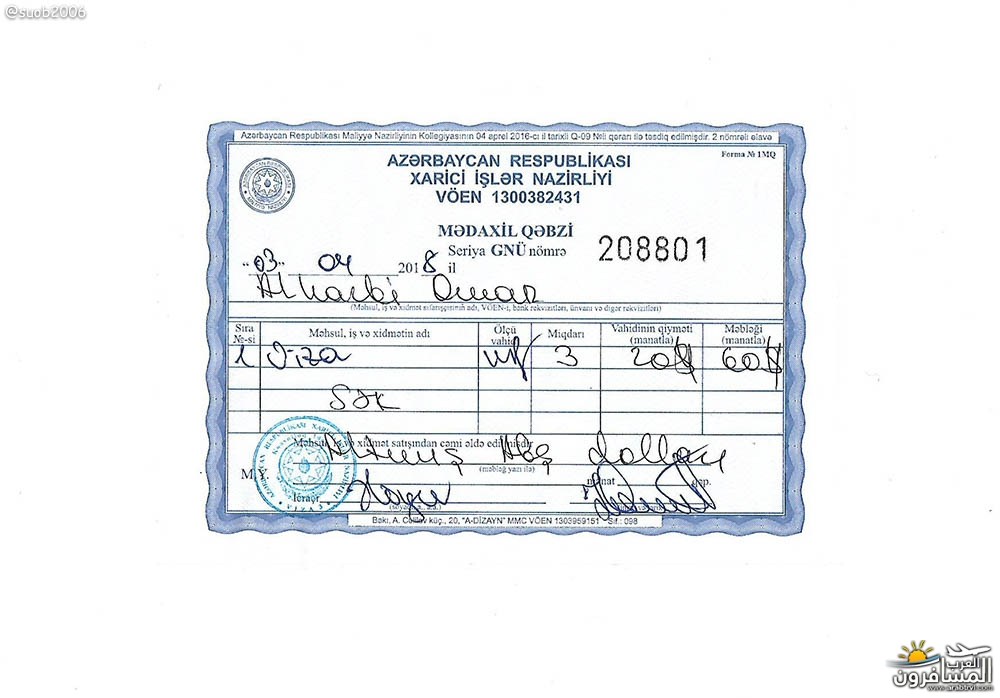 @suob2006
Azərbaycan Respublikası Maliyyə Nazirliyinin Kollegiyasının 04 aprel 2016-cı il tarixli Q-09 №li qərarı ilə təsdiq edilmişdir. 2 nömrəli əlavə
Forma № 1MQ
AZƏRBAYCAN RESPUBLİKASI
XARİCİ İŞLƏR NAZİRLİYİ
VÖEN 1300382431
MƏDAXİL QƏBZİ
Seriya GNÜ nömrə 208801
"03" 04 2018 il
Alharbi Omar
(Məhsul, iş və xidmət sifarişçisinin adı, VÖEN-i, bank rekvizitləri, ünvanı və digər rekvizitləri)
Sıra №-si Məhsul, iş və xidmətin adı Ölçü vahidi Miqdarı Vahidinin qiyməti (manatla) Məbləği (manatla)
1 Viza 3 20$ 60$
Məhsul, iş və xidmət satışından cəmi əldə edilmişdir
Altmış dollar
(məbləğ yazı ilə)
M.Y. manat qəp.
İcraçı
Bakı, A. Cəlilov küç., 20, "A-DİZAYN" MMC VÖEN 1303959151 Sif.: 098
العرب
المسافرون
www.arabtrvl.com